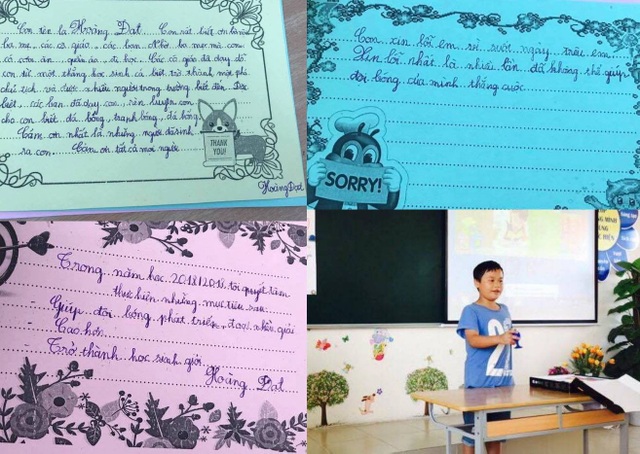 Con tên là Hoàng Đạt. Con rất biết ơn là
ba mẹ, các cô giáo, các bạn. Nhờ ba mẹ mà con
có cơm ăn, quần áo, đi học. Các cô giáo đã dạy dỗ
con từ một thằng học sinh cá biệt trở thành một phó
chủ tịch và được nhiều người trong trường biết đến. Đặc
biệt, các bạn đã dạy con, rèn luyện con
cho con biết đá bóng, tranh bóng, đá bóng.
Cảm ơn nhất là những người đã sinh
ra con. Cảm ơn tất cả mọi người
THANK YOU!
Hoàng Đạt
Con xin lỗi em vì suốt ngày trêu em.
Xin lỗi nhất là nhiều lần đã không thể giúp
đội bóng của mình thắng cuộc
SORRY!
Trong năm học 2018/2019 tôi quyết tâm
thực hiện những mục tiêu sau
- Giúp đội bóng phát triển, đoạt nhiều giải
Cao hơn.
- Trở thành học sinh giỏi
Hoàng Đạt